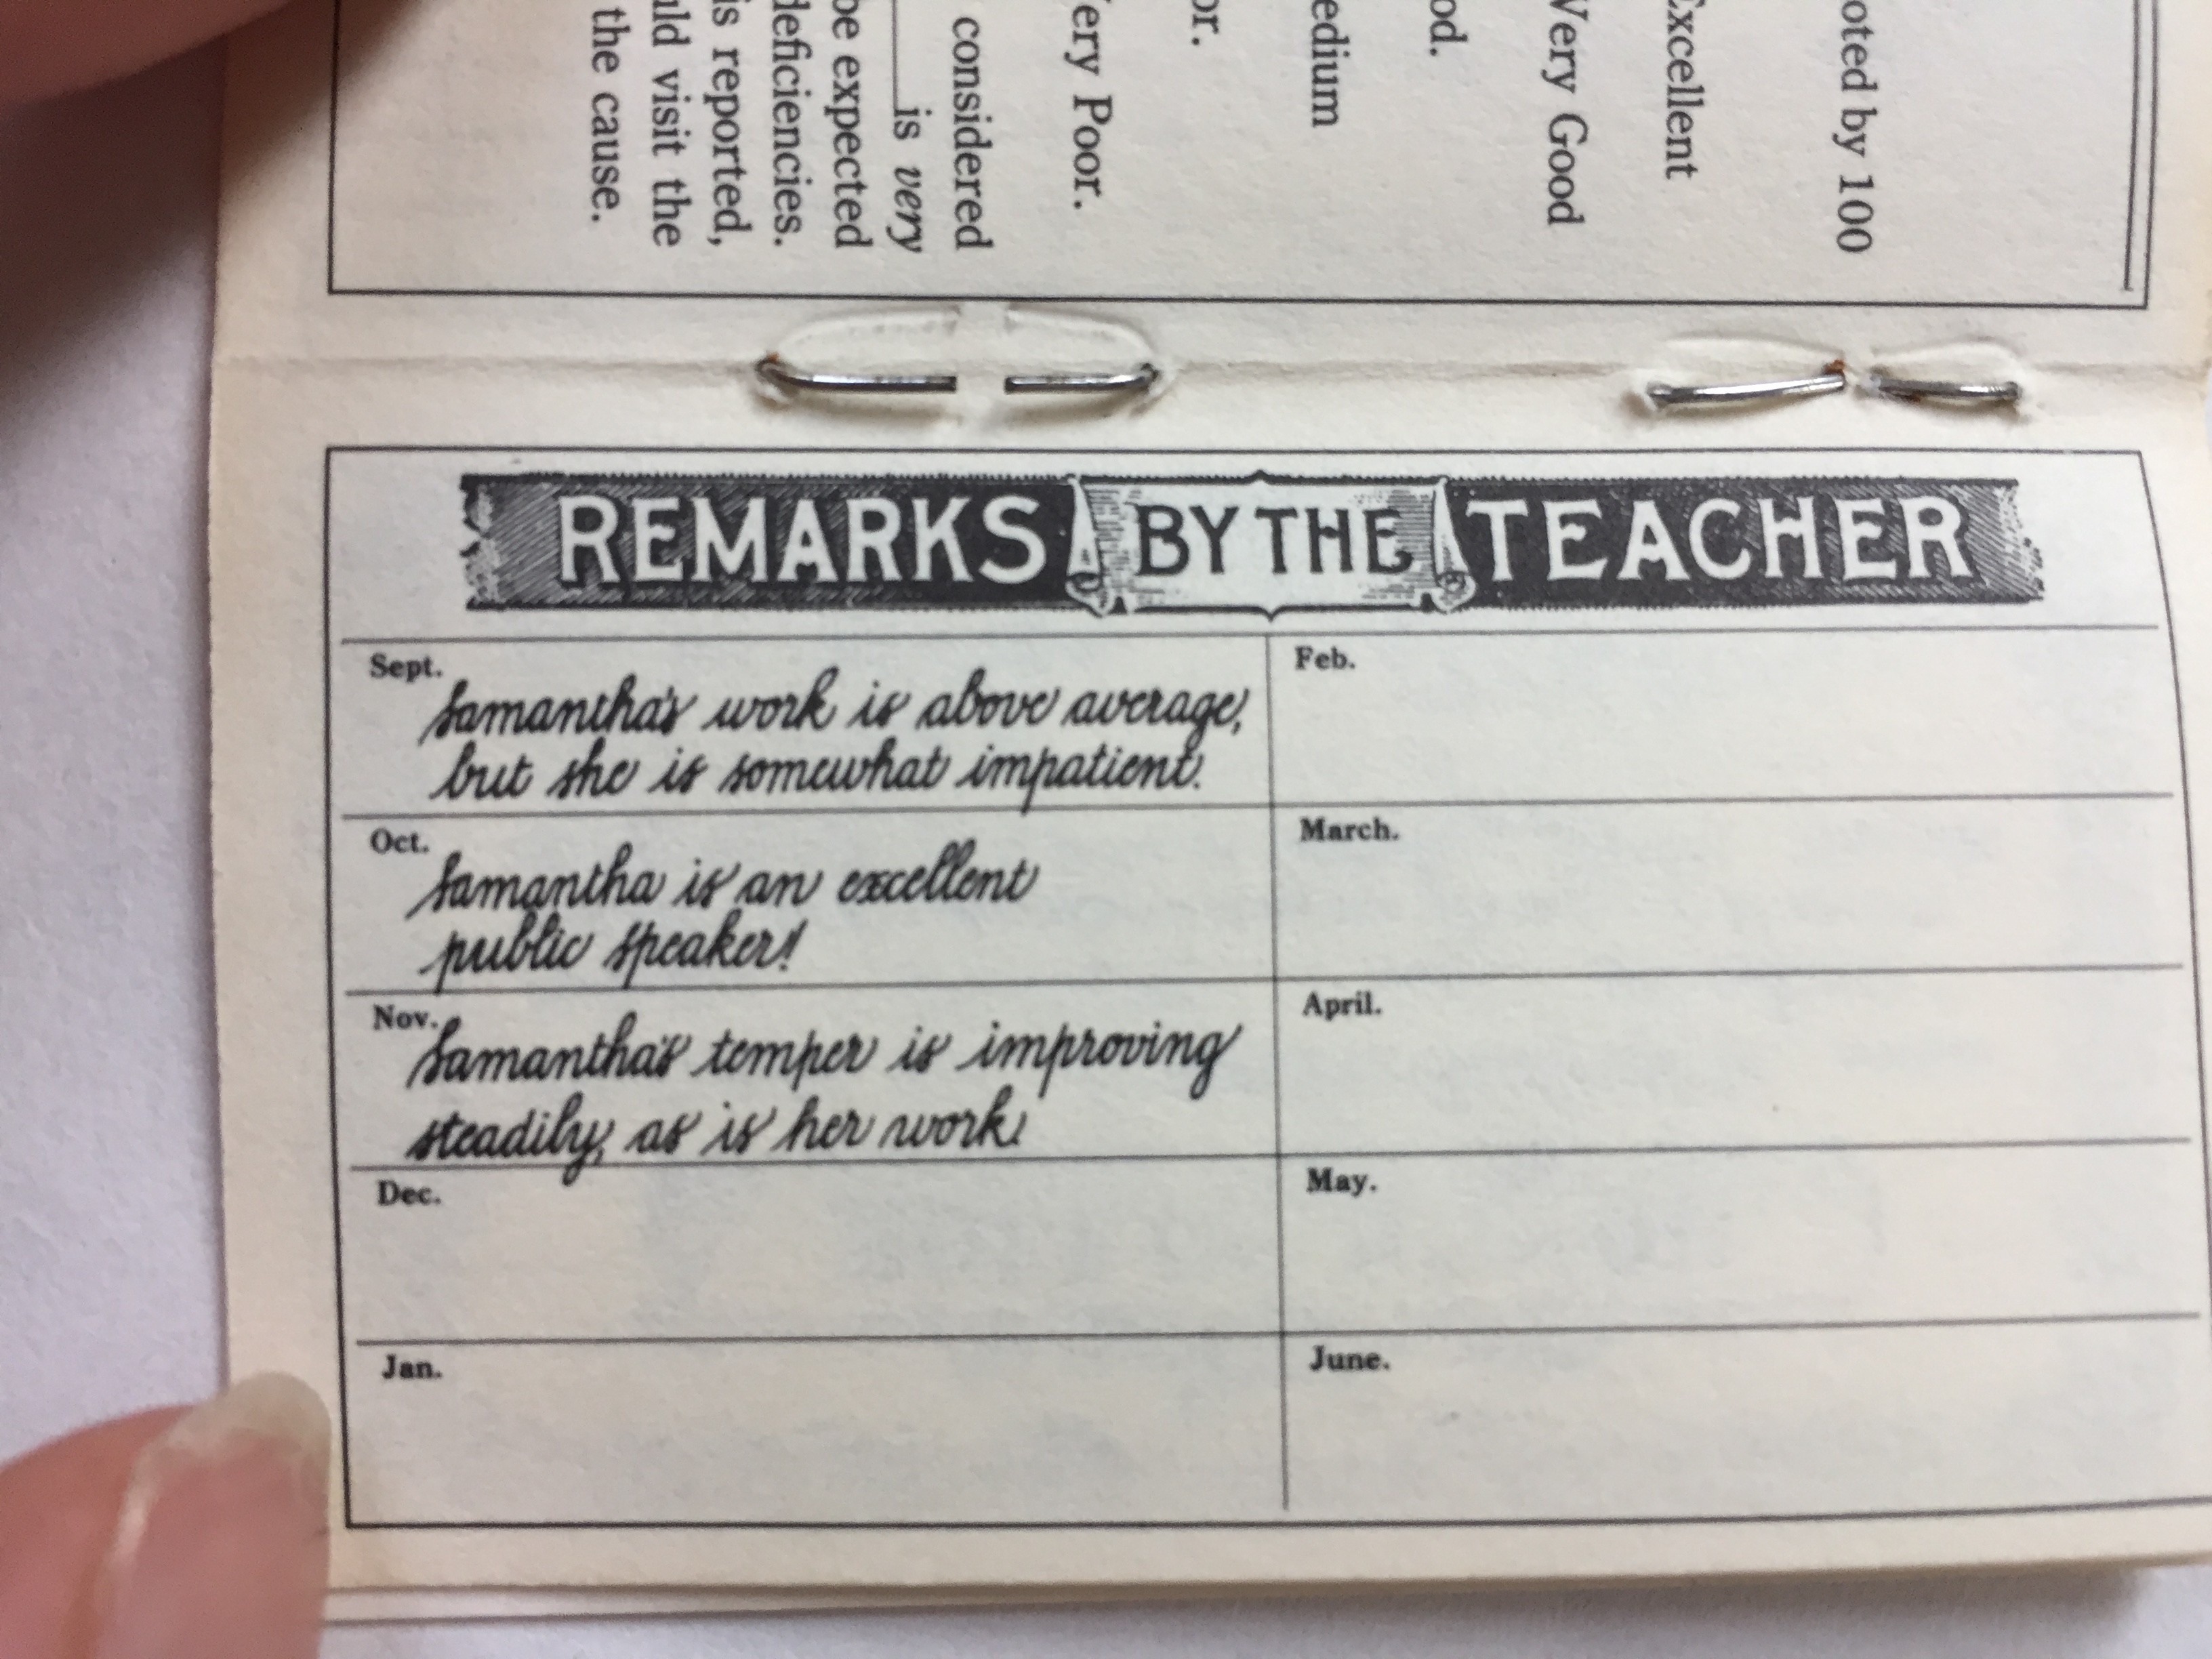 oted by 100
Excellent
Very Good
od.
edium
or.
ery Poor.
considered
is very
be expected
deficiencies.
is reported,
uld visit the
the cause.
REMARKS BY THE TEACHER
Sept.
Samantha's work is above average,
but she is somewhat impatient.
Oct.
Samantha is an excellent
public speaker!
Nov.
Samantha's temper is improving
steadily, as is her work.
Dec.
Jan.
Feb.
March.
April.
May.
June.